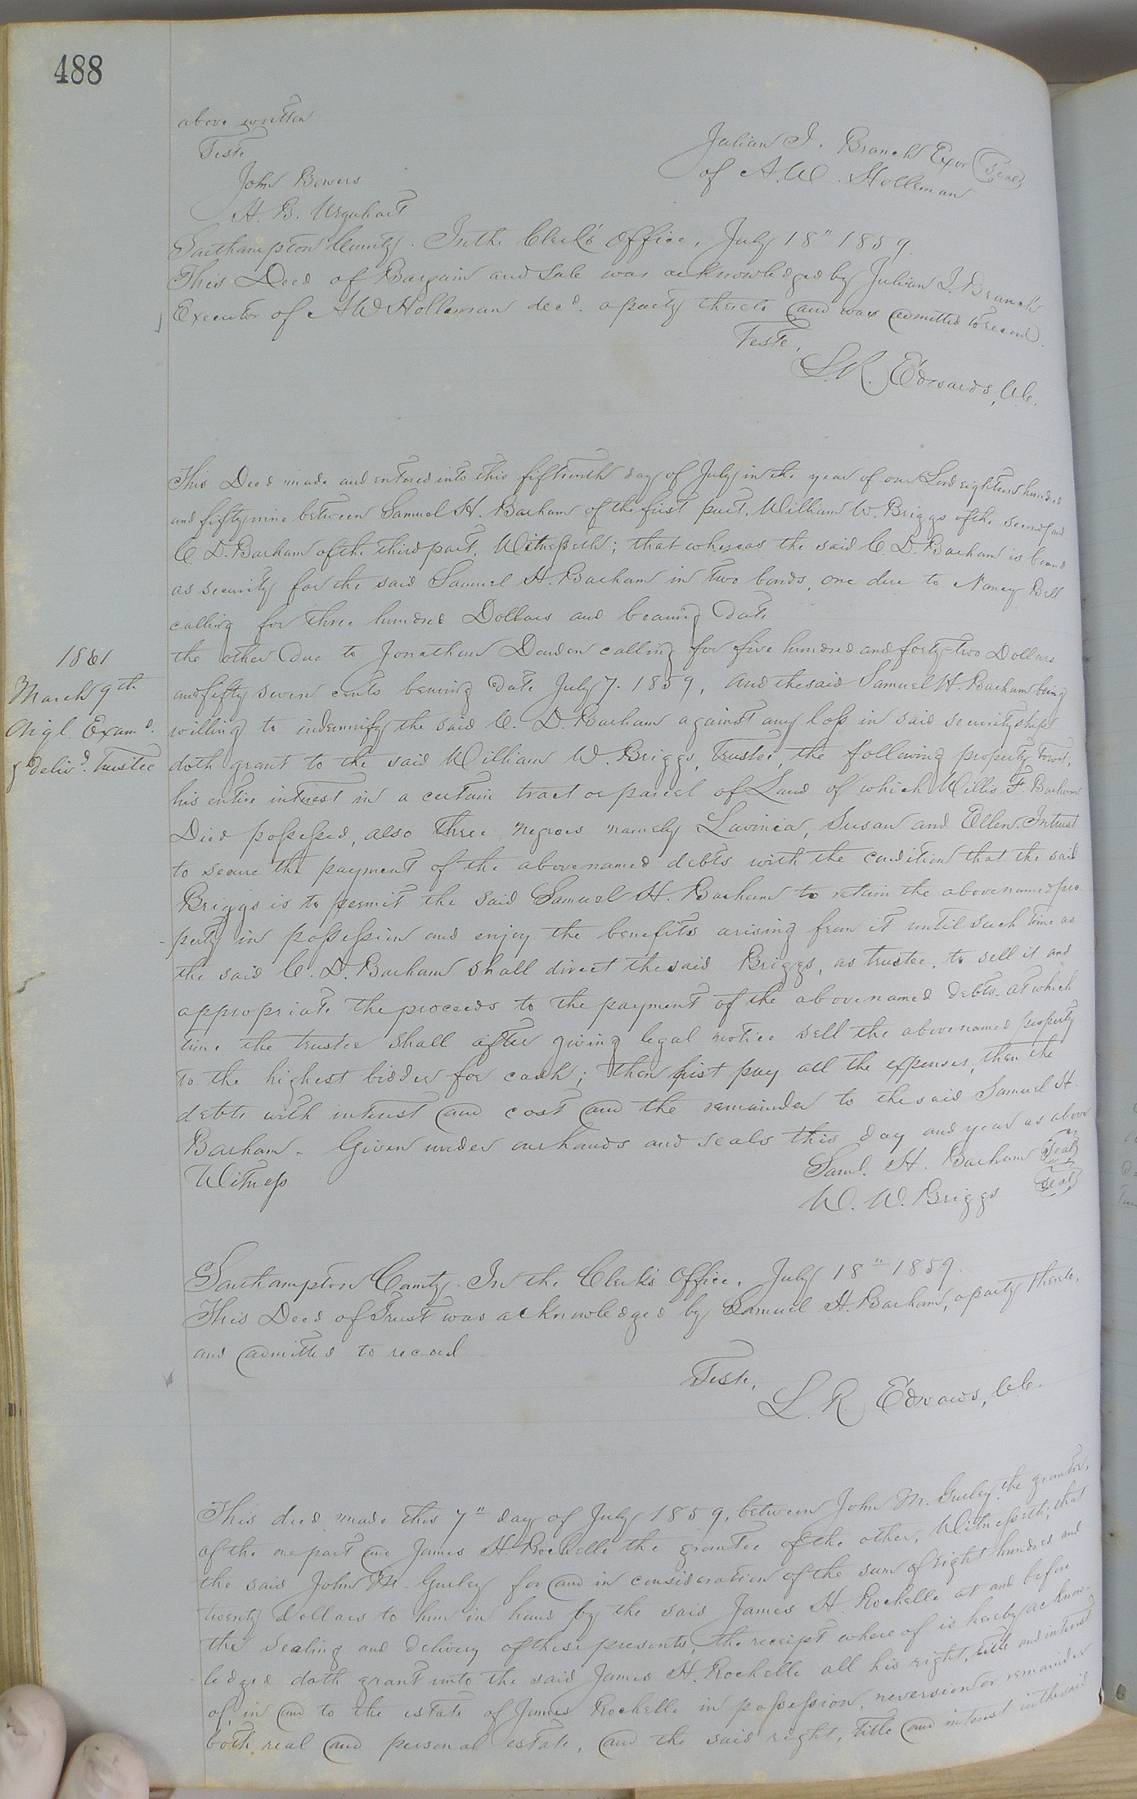 488
above written
Teste
John Bowers
H. B. Urquhart
Julian J. Branch Exor (Seal)
of A. W. Holleman
Southampton County. In the Clerk's Office, July 18" 1859.
This Deed of Bargain and Sale was acknowledged by Julian J. Branch
Executor of A W Holleman decd. a party thereto and was admitted to record.
Teste,
L. R. Edwards, C.C.
This Deed made and entered into this fifteenth day of July in the year of our Lord eighteen hundred
and fifty nine between Samuel H. Barham of the first part, William W. Briggs of the second and
C D. Barham of the third part. Witnesseth; that whereas the said C D. Barham is bound
as security for the said Samuel H. Barham in two bonds, one due to Nancy Bell
calling for three hundred Dollars and bearing date
the other due to Jonathan Darden calling for five hundred and forty-two Dollars
and fifty seven cents bearing date July 7. 1859, and the said Samuel H. Barham being
willing to indemnify the said C. D Barham against any loss in said securityship
doth grant to the said William W. Briggs, trustee, the following property towit,
his entire interest in a certain tract or parcel of Land of which Willis F. Barham
Died possessed, also three negroes namely Lavinia, Susan and Ellen. In trust
to secure the payment of the above named debts with the condition that the said
Briggs is to permit the said Samuel H. Barham to retain the above named pro
-perty in possession and enjoy the benefits arising from it until such time as
the said C. D. Barham shall direct the said Briggs, as trustee, to sell it and
appropriate the proceeds to the payment of the above named debts - at which
time the trustee shall after giving legal notice sell the above named property
to the highest bidder for cash; then first pay all the expenses, then the
debts with interest and cost and the remainder to the said Samuel H.
Barham. Given under our hands and seals this day and year as above
Witness
Saml. H. Barham (Seal)
W. W. Briggs (Seal)
1861
March 9th
Origl. Examd.
& delivd. trustee
Southampton County. In the Clerk's Office, July 18" 1859.
This Deed of Trust was acknowledged by Samuel H. Barham, a party thereto,
and admitted to record
Teste,
L. R. Edwards, C.C.
This deed made this 7" day of July 1859, between John M. Gurley the grantor,
of the one part and James H Rochelle the grantee of the other, Witnesseth; that
the said John M. Gurley for and in consideration of the sum of eight hundred and
twenty dollars to him in hand by the said James H. Rochelle at and before
the sealing and delivery of these presents, the receipt where of is hereby acknow-
ledged doth grant unto the said James H. Rochelle all his right, title and interest
of, in and to the estate of James Rochelle in possession, reversion or remainder
both real and personal estate, and the said right, title and interest in the said